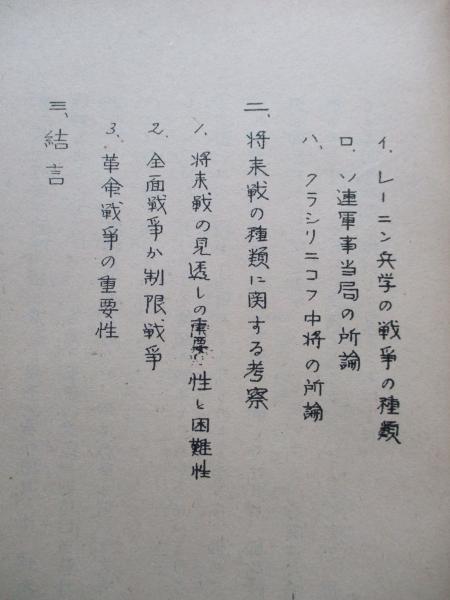 イ、レーニン兵学の戦争の種類
ロ、ソ連軍事当局の所論
ハ、クラシリニコフ中将の所論
二、将来戦の種類に関する考察
1. 将来戦の見透しの重要性と困難性
2. 全面戦争か制限戦争
3. 革命戦争の重要性
三、結言